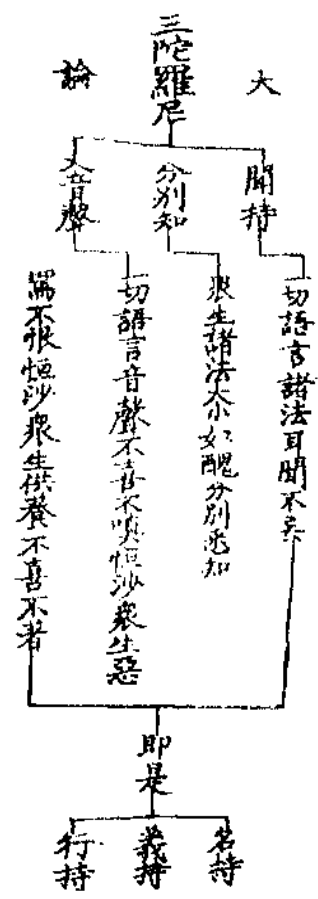 大
論
三陀羅尼
聞持
分別知
入音聲
一切語言諸法耳聞不忘
眾生諸法大小好醜分別悉知
一切語言音聲不喜不嗔恒沙眾生惡
罵不恨恒沙眾生供養不喜不著
即是
名持
義持
行持